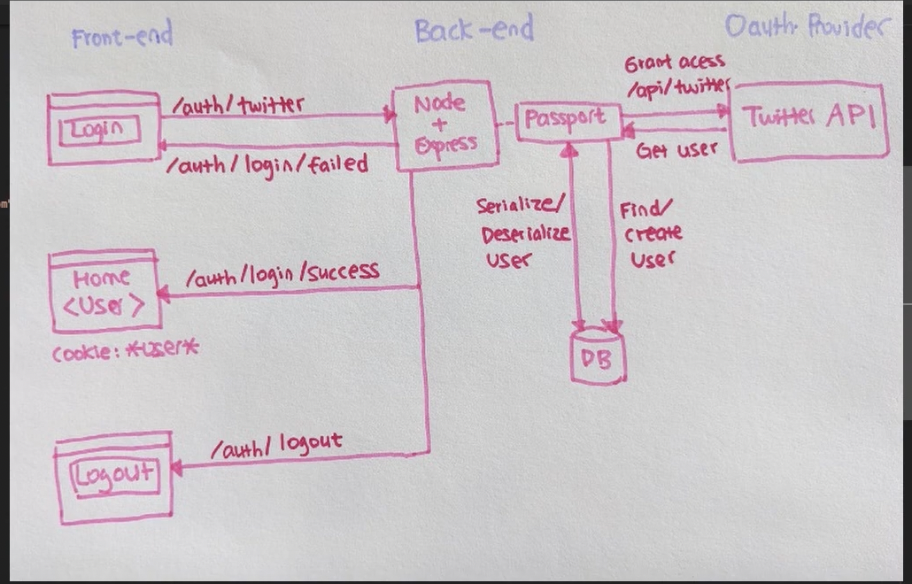 Front-end
Back-end
Oauth Provider
Login
/auth/twitter
/auth/login/failed
Node
+
Express
Passport
Grant acess
/api/twitter
Get user
Twitter API
Serialize/
Deserialize
User
Find/
create
User
DB
Home
<User>
/auth/login/success
Cookie: *user*
Logout
/auth/logout